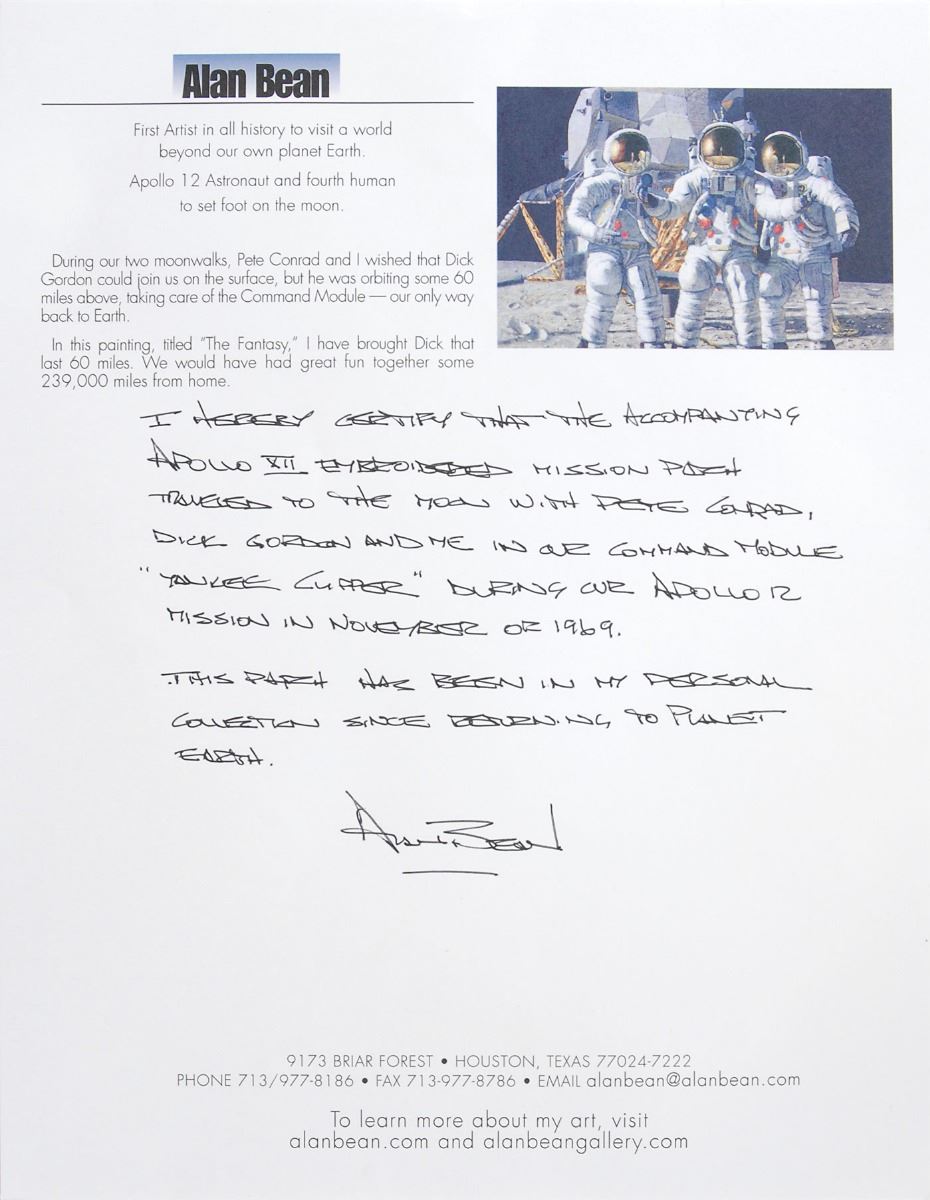 Alan Bean
First Artist in all history to visit a world
beyond our own planet Earth.
Apollo 12 Astronaut and fourth human
to set foot on the moon.
During our two moonwalks, Pete Conrad and I wished that Dick
Gordon could join us on the surface, but he was orbiting some 60
miles above, taking care of the Command Module — our only way
back to Earth.
In this painting, titled "The Fantasy," I have brought Dick that
last 60 miles. We would have had great fun together some
239,000 miles from home.
I HEREBY CERTIFY THAT THE ACCOMPANYING
APOLLO XII EMBROIDERED MISSION PATCH
TRAVELED TO THE MOON WITH PETE CONRAD,
DICK GORDON AND ME IN OUR COMMAND MODULE
"YANKEE CLIPPER" DURING OUR APOLLO 12
MISSION IN NOVEMBER OF 1969.
THIS PATCH HAS BEEN IN MY PERSONAL
COLLECTION SINCE RETURNING TO PLANET
EARTH.
Alan Bean
9173 BRIAR FOREST • HOUSTON, TEXAS 77024-7222
PHONE 713/977-8186 • FAX 713-977-8786 • EMAIL alanbean@alanbean.com
To learn more about my art, visit
alanbean.com and alanbeangallery.com